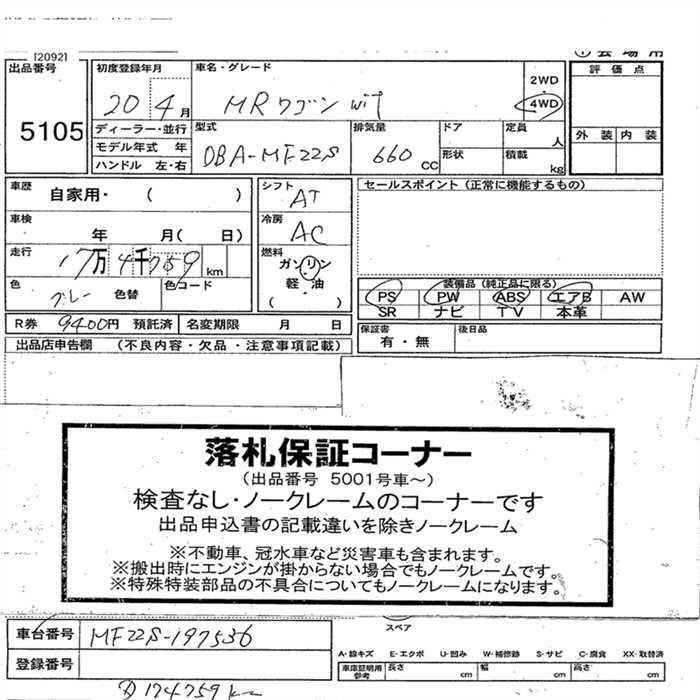 [2092]
出品番号
5105
初度登録年月
20 4月
車名・グレード
MRワゴン wit
2WD
4WD
評価点
外装 内装
ディーラー・並行
モデル年式 年
ハンドル 左・右
型式
DBA-MF22S
排気量
660 CC
ドア
形状
定員
人
積載
kg
車歴
自家用・ ( )
車検
年 月( 日)
走行
17万4千759km
色
グレー
色替
色コード
シフト
AT
冷房
AC
燃料
ガソリン
軽・油
( ・ )
セールスポイント (正常に機能するもの)
装備品 (純正品に限る)
PS PW ABS エアB AW
SR ナビ TV 本革
R券 9400円 預託済
名変期限 月 日
保証書
有・無
後日品
出品店申告欄 (不良内容・欠品・注意事項記載)
落札保証コーナー
(出品番号 5001号車~)
検査なし・ノークレームのコーナーです
出品申込書の記載違いを除きノークレーム
※不動車、冠水車など災害車も含まれます。
※搬出時にエンジンが掛からない場合でもノークレームです。
※特殊特装部品の不具合についてもノークレームになります。
スペア
車台番号
MF22S-197536
登録番号
A-線キズ E-エクボ U-凹み W-補修跡 S-サビ C-腐食 XX-取替済
車庫証明用参考
長さ cm 幅 cm 高さ cm
174759km